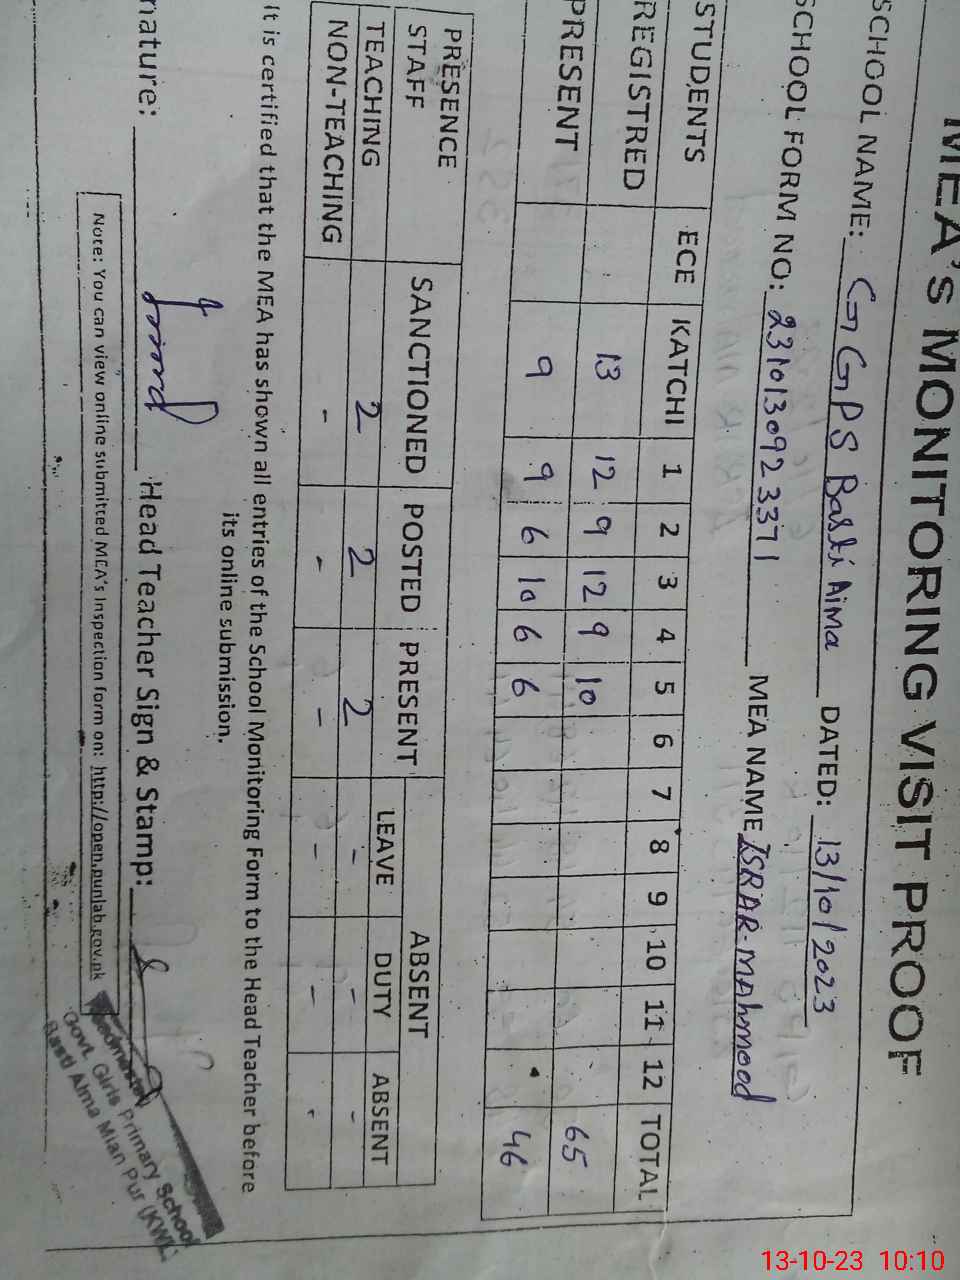 MEA's MONITORING VISIT PROOF
SCHOOL NAME: GGPS Basti Aima DATED: 13/10/2023
SCHOOL FORM NO: 2310130923371 MEA NAME ISRAR-MAhmood
STUDENTS ECE KATCHI 1 2 3 4 5 6 7 8 9 10 11 12 TOTAL
REGISTRED 13 12 9 12 9 10 65
PRESENT 9 9 6 10 6 6 46
PRESENCE STAFF SANCTIONED POSTED PRESENT ABSENT
LEAVE DUTY ABSENT
TEACHING 2 2 2 - - -
NON-TEACHING - - - - - -
It is certified that the MEA has shown all entries of the School Monitoring Form to the Head Teacher before
its online submission.
nature: Head Teacher Sign & Stamp:
Note: You can view online submitted MEA's Inspection form on: http://open.punjab.gov.pk
Headmaster
Govt. Girls Primary School
Basti Aima Mian Pur (KWL)
13-10-23 10:10